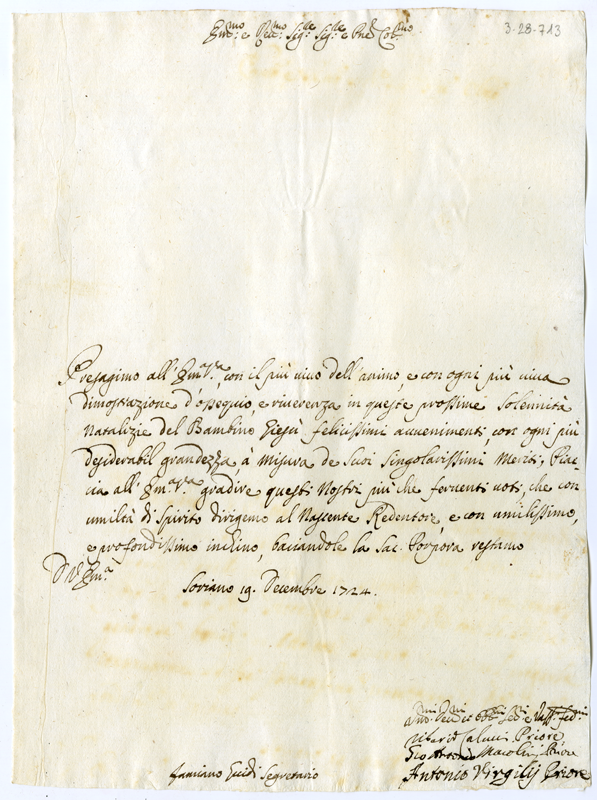 3-28-713
Em:mo e Rev:mo Sig:re Sig:re e Pne Col:mo
Presagimo all' Em:a V:a con il più vivo dell'animo, e con ogni più viva
dimostrazione d'ossequio, e riverenza in queste prossime solennità
Natalizie del Bambino Giesù felicissimi avvenimenti, con ogni più
desiderabil grandezza à misura de Suoi Singolarissimi Meriti; Piac-
cia all' Em:a V:a gradire questi Nostri più che ferventi voti, che con
umiltà di Spirito dirigemo al Nascente Redentore, e con umilissimo,
e profondissimo inchino, baciandole la Sac. Porpora restamo
D V Em:a
Soriano 19. Decembre 1724.
Priore
Gio Antonio Priore
Antonio Virgilij Priore
Segretario